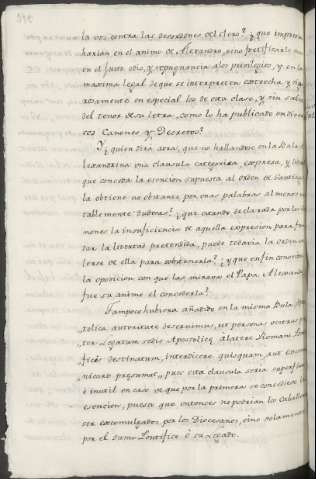 la voz contra las decisiones del clero? ¿que impresion
harian en el animo de Alexandro, sino fortificarle mas
en el justo odio, y repugnancia a los privilegios, y en la
maxima legal de que se interpreten estrecha y
rosamente en especial los de esta clase, y sin salir
del tenor de su letra, como lo ha publicado en
tos Canones y Decretos?
Y quien dirá aora, que no hallandose en la Bula
Alexandrina una clausula categorica, expresa, y
que conceda la esencion supuesta al orden de Santiago
la obtiene no obstante por unas palabras al menos no
tablemente dudosas? ¿que quando declarada por los
nones la insuficiencia de aquella expresion para fun
dar la libertad pretendida, puede todavia la
lerse de ella para sobstenerla? ¿y que en fin
la oposicion con que las miraba el Papa Alexandro
fue su animo el concederla?
Tampoco hubiera añadido en la misma Bula
tolica autoritate decernimus, ut personas vestras
ter Legatum Sedis Apostolicę a latere Romani
ficis destinatum, interdicere quisquam, aut
nicare pręsumat, pues esta clausula seria superflua
é inutil en caso de que por la primera se concediese la
esencion, puesto que entonces no podrian los Caballeros
ser excomulgados por los Diocesanos, sino solamente
por el sumo Pontifice ó su Legado.